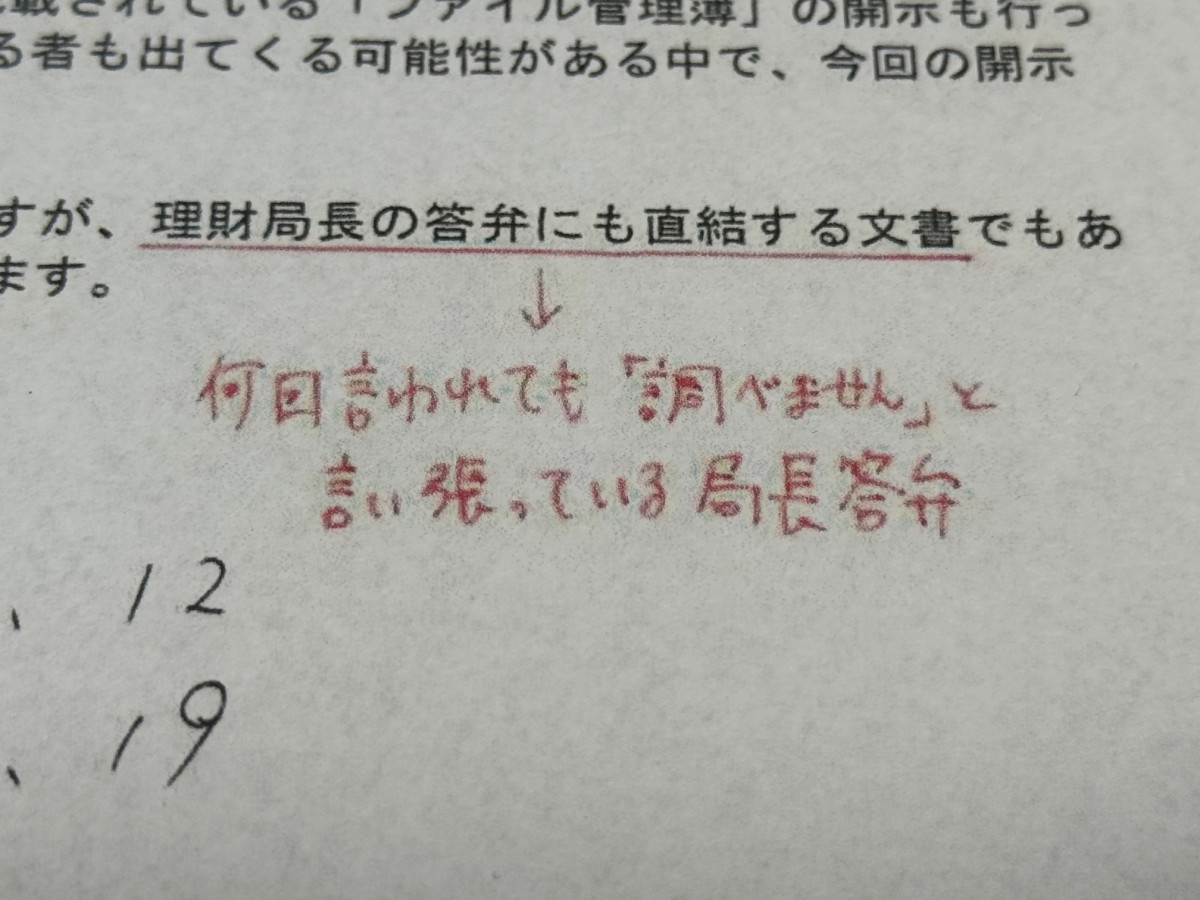 載されている「ファイル管理簿」の開示も行っ
る者も出てくる可能性がある中で、今回の開示
すが、理財局長の答弁にも直結する文書でもあ
ます。
↓
何回言われても「調べません」と
言い張っている局長答弁
、12
、19